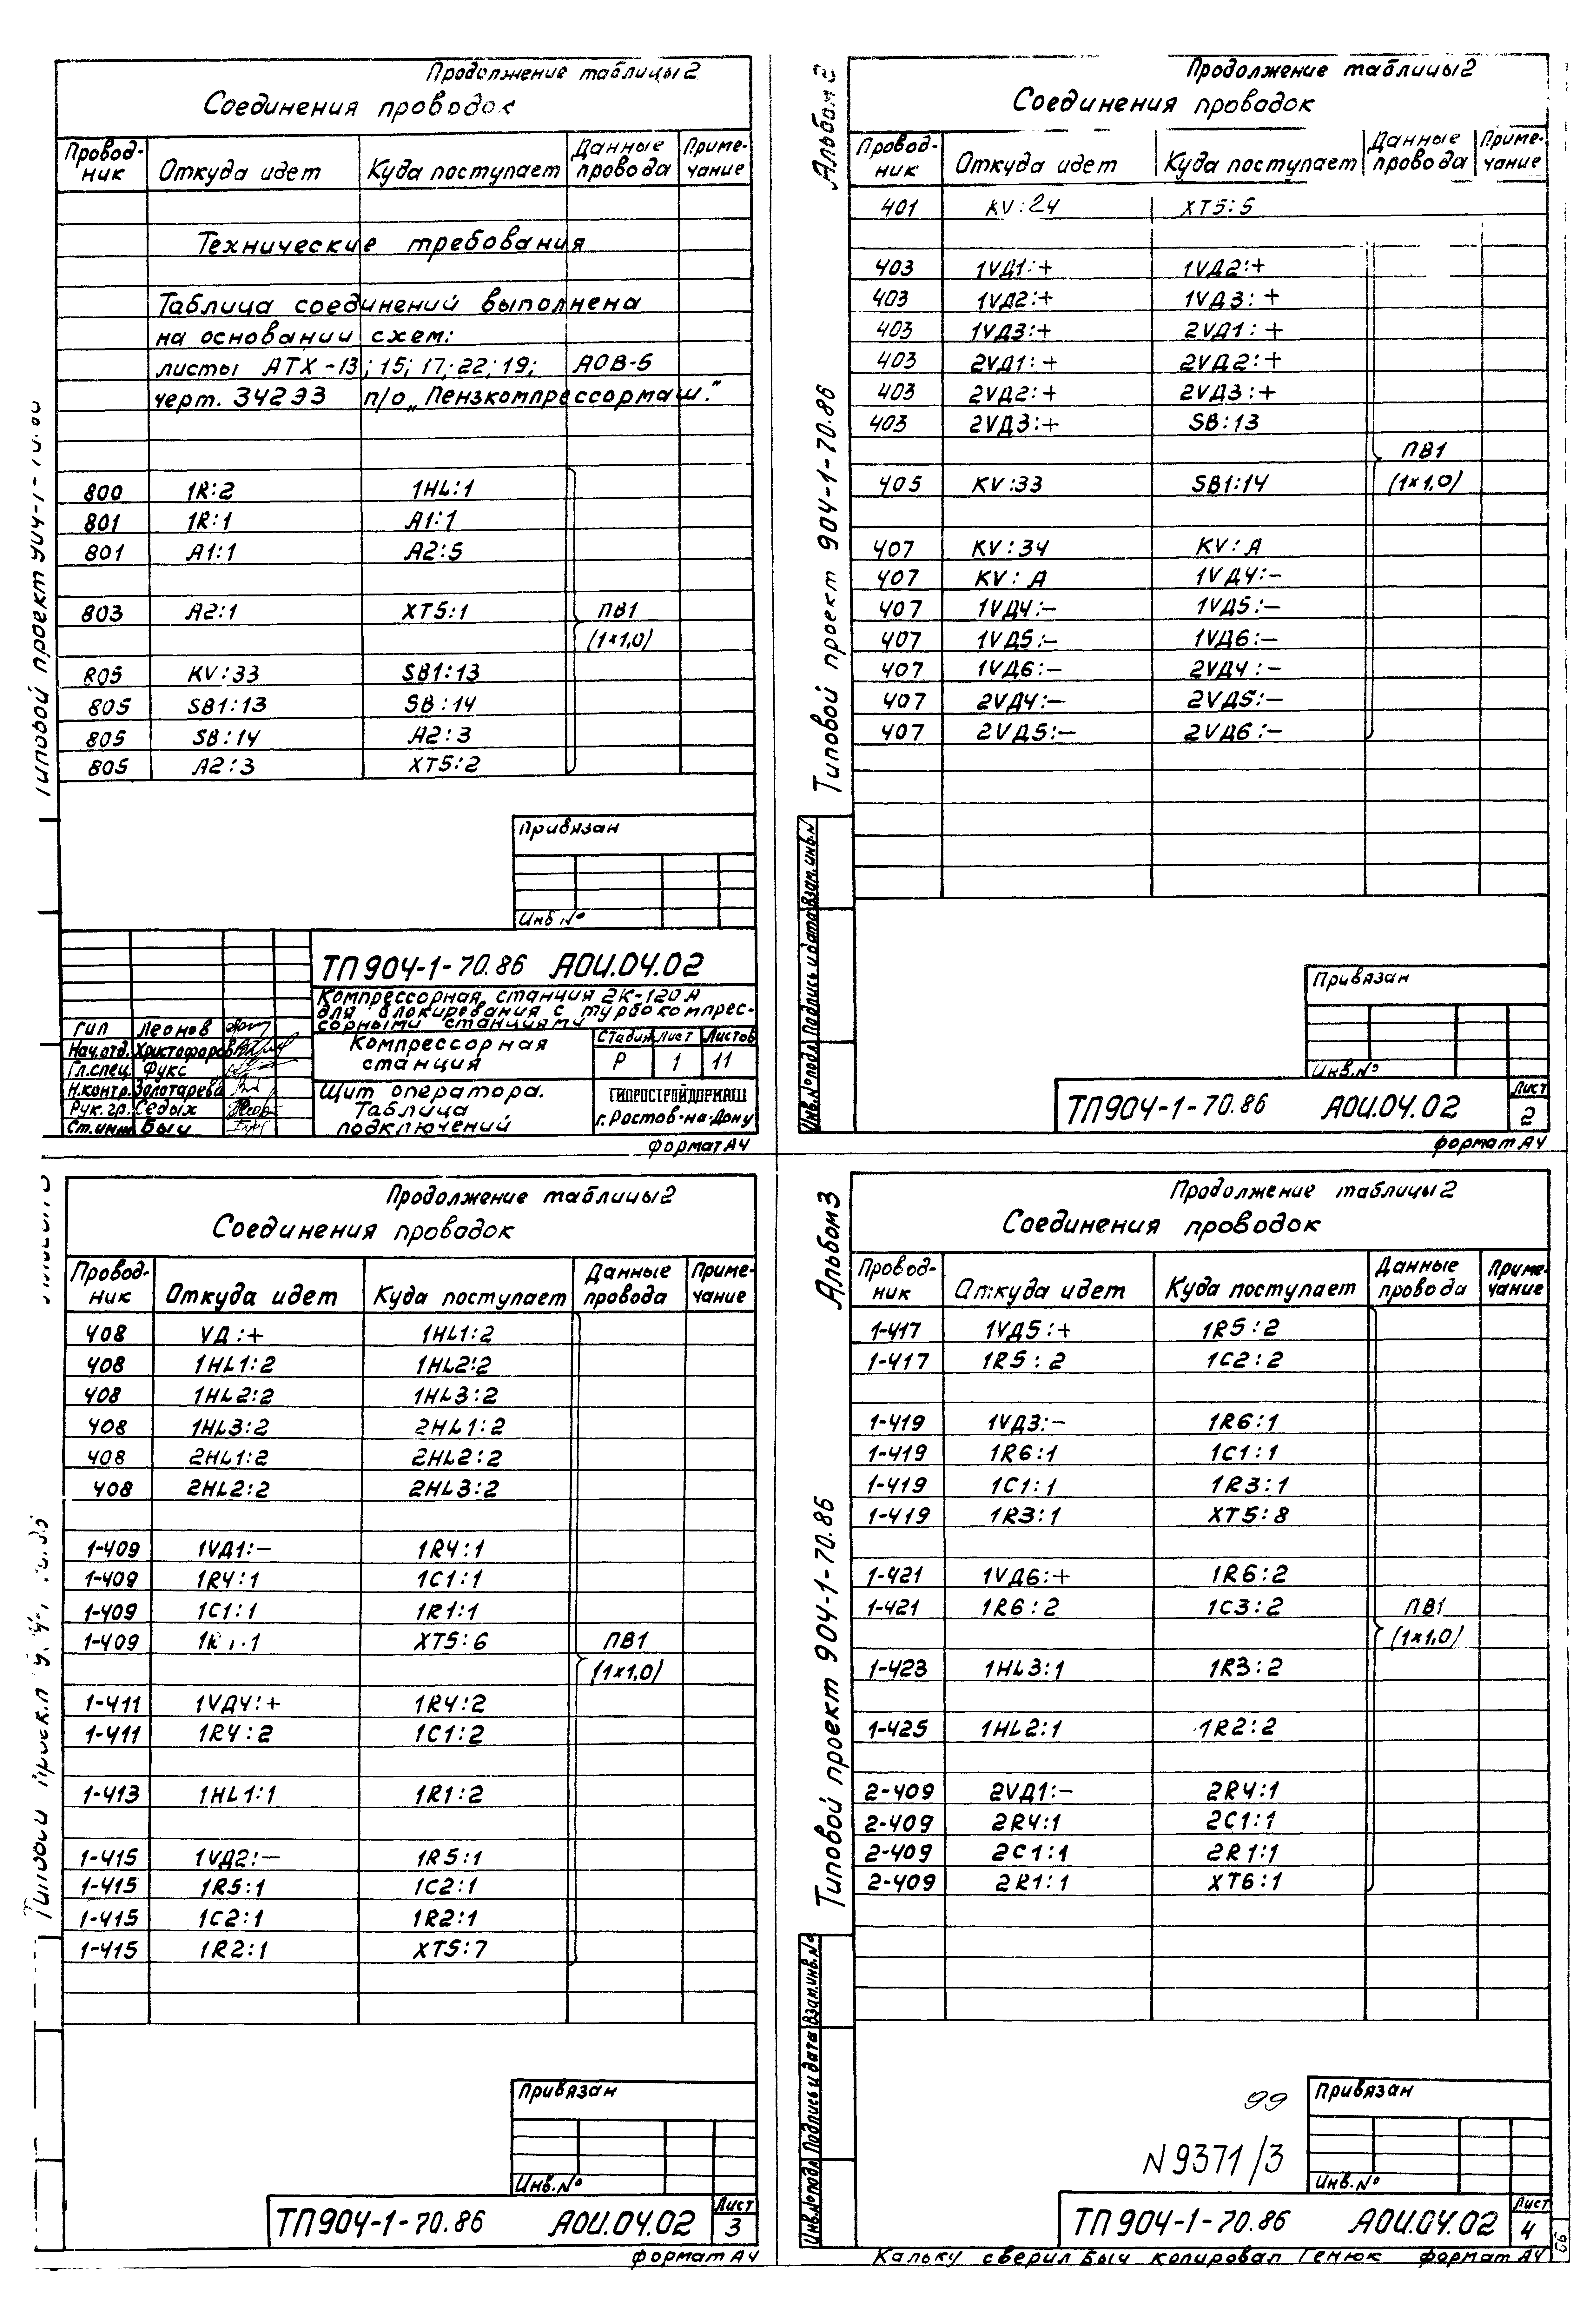 Продолжение таблицы 2
Соединения проводок
Провод-ник Откуда идет Куда поступает Данные провода Приме-чание
Технические требования
Таблица соединений выполнена
на основании схем:
листы АТХ-13; 15; 17; 22; 19; АОВ-5
черт. 342ЭЗ п/о „Пензкомпрессормаш."
800 1R:2 1HL:1
801 1R:1 A1:1
801 A1:1 A2:5
803 A2:1 XT5:1 ПВ1
(1×1,0)
805 KV:33 SB1:13
805 SB1:13 SB:14
805 SB:14 A2:3
805 A2:3 XT5:2
Типовой проект 904-1-70.86
Привязан
Инв №
ТП 904-1-70.86 АОИ.04.02
Компрессорная станция 2К-120А
для блокирования с турбокомпрес-
сорными станциями
ГИП Леонов
Нач.отд. Христофоров
Гл.спец. Фукс
Н.контр. Золотарева
Рук.гр. Седых
Ст.инж Быч
Компрессорная
станция
Стадия Лист Листов
Р 1 11
Щит оператора.
Таблица
подключений
ГИПРОСТРОЙДОРМАШ
г. Ростов-на-Дону
формат А4
Альбом 2
Продолжение таблицы 2
Соединения проводок
Провод-ник Откуда идет Куда поступает Данные провода Приме-чание
401 KV:24 XT5:5
403 1VД1:+ 1VД2:+
403 1VД2:+ 1VД3:+
403 1VД3:+ 2VД1:+
403 2VД1:+ 2VД2:+
403 2VД2:+ 2VД3:+
403 2VД3:+ SB:13
ПВ1
405 KV:33 SB1:14 (1×1,0)
407 KV:34 KV:A
407 KV:A 1VД4:-
407 1VД4:- 1VД5:-
407 1VД5:- 1VД6:-
407 1VД6:- 2VД4:-
407 2VД4:- 2VД5:-
407 2VД5:- 2VД6:-
Типовой проект 904-1-70.86
Инв.№ подл. Подпись и дата Взам.инв.№
Привязан
Инв.№
ТП 904-1-70.86 АОИ.04.02
Лист
2
формат А4
Продолжение таблицы 2
Соединения проводок
Провод-ник Откуда идет Куда поступает Данные провода Приме-чание
408 VД:+ 1HL1:2
408 1HL1:2 1HL2:2
408 1HL2:2 1HL3:2
408 1HL3:2 2HL1:2
408 2HL1:2 2HL2:2
408 2HL2:2 2HL3:2
1-409 1VД1:- 1R4:1
1-409 1R4:1 1C1:1
1-409 1C1:1 1R1:1
1-409 XT5:6 ПВ1
(1×1,0)
1-411 1VД4:+ 1R4:2
1-411 1R4:2 1C1:2
1-413 1HL1:1 1R1:2
1-415 1VД2:- 1R5:1
1-415 1R5:1 1C2:1
1-415 1C2:1 1R2:1
1-415 1R2:1 XT5:7
Привязан
Инв.№
ТП 904-1-70.86 АОИ.04.02
Лист
3
формат А4
Альбом 3
Продолжение таблицы 2
Соединения проводок
Провод-ник Откуда идет Куда поступает Данные провода Приме-чание
1-417 1VД5:+ 1R5:2
1-417 1R5:2 1C2:2
1-419 1VД3:- 1R6:1
1-419 1R6:1 1C1:1
1-419 1C1:1 1R3:1
1-419 1R3:1 XT5:8
1-421 1VД6:+ 1R6:2
1-421 1R6:2 1C3:2 ПВ1
(1×1,0)
1-423 1HL3:1 1R3:2
1-425 1HL2:1 1R2:2
2-409 2VД1:- 2R4:1
2-409 2R4:1 2C1:1
2-409 2C1:1 2R1:1
2-409 2R1:1 XT6:1
Типовой проект 904-1-70.86
Инв.№ подл. Подпись и дата Взам.инв.№
99
N 9371/3
Привязан
Инв.№
ТП 904-1-70.86 АОИ.04.02
Лист
4
Кальку сверил Быч копировал Генюк формат А4